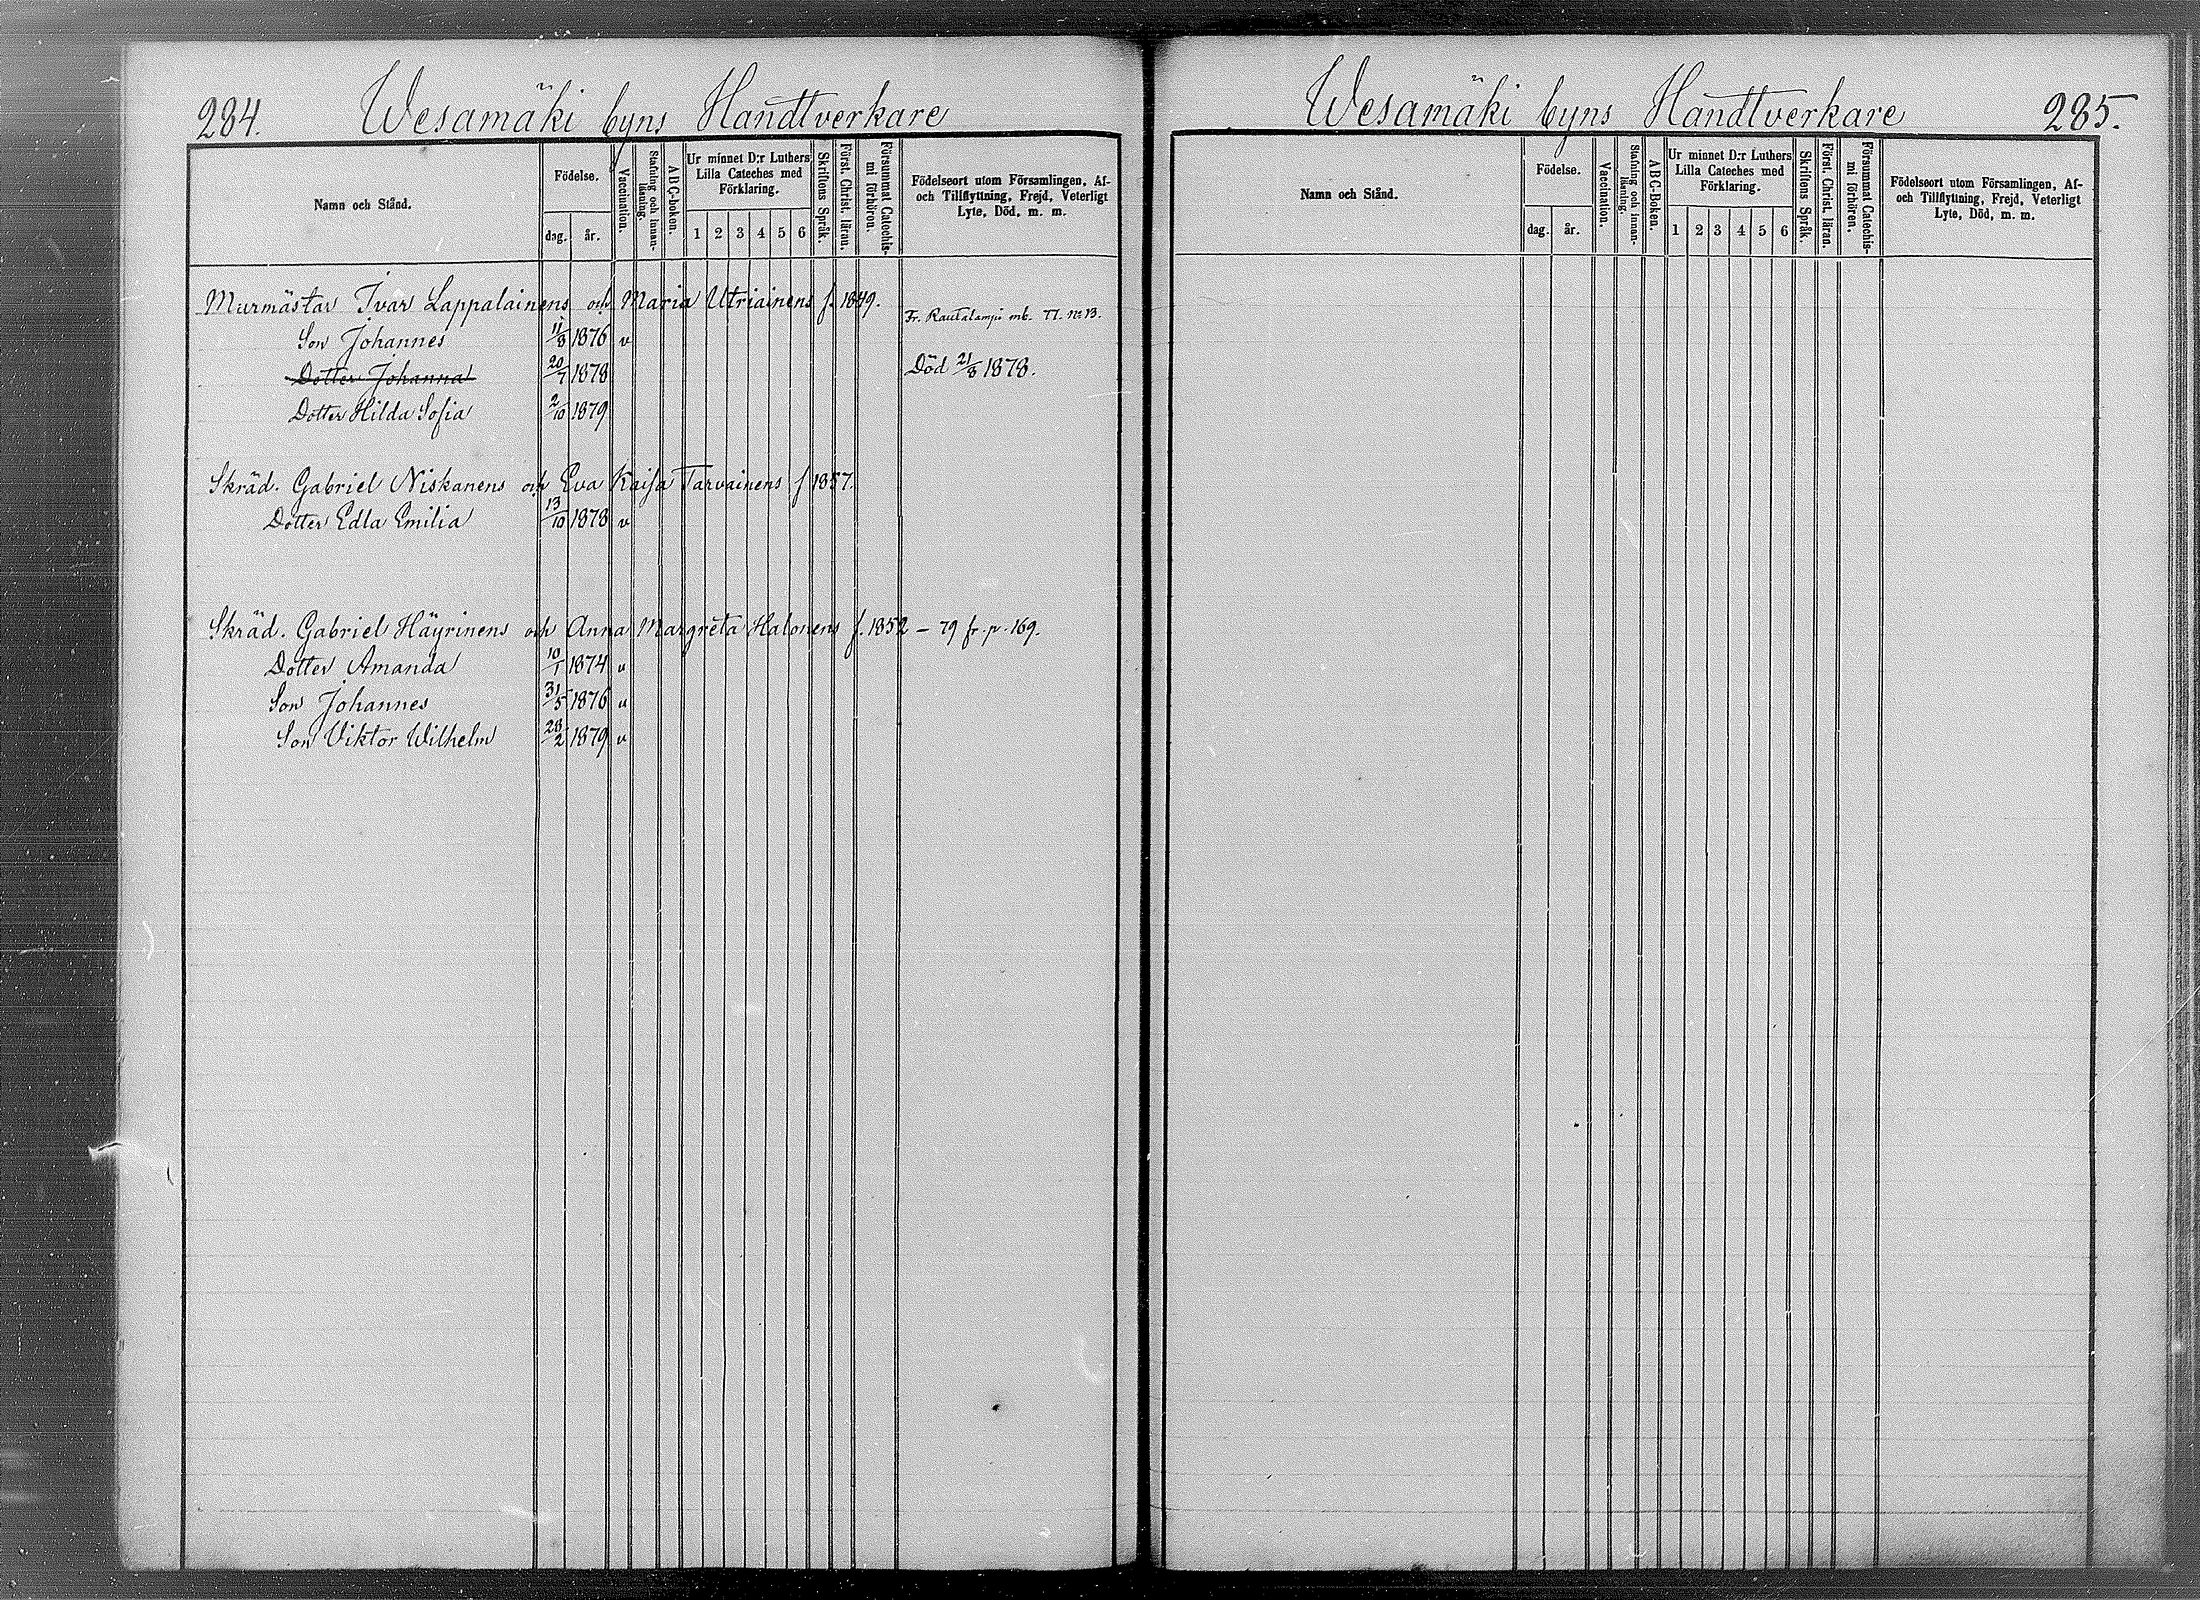 284. Wesamäki byns Handtverkare
Namn och Stånd.
Födelse.
dag. år.
Vaccination.
Stafning och innan-
läsning.
ABC-boken.
Ur minnet D:r Luthers
Lilla Cateches med
Förklaring.
1 2 3 4 5 6
Skriftens Språk.
Först. Christ. läran.
Försummat Catechis-
mi förhören.
Födelseort utom Församlingen, Af-
och Tillflyttning, Frejd, Veterligt
Lyte, Död, m. m.
Murmästar Ivar Lappalainens och Maria Utriainens f. 1849. Fr. Rautalampi mb. 77. nr 13.
Son Johannes 11/8 1876 v
Dotter Johanna 20/7 1878 Död 21/8 1878.
Dotter Hilda Sofia 2/10 1879
Skräd. Gabriel Niskanens och Eva Kaisa Tarvainens f 1857.
Dotter Edla Emilia 13/10 1878 v
Skräd. Gabriel Häyrinens och Anna Margreta Halonens f. 1852 – 79 fr. p. 169.
Dotter Amanda 10/1 1874 v
Son Johannes 31/5 1876 v
Son Viktor Wilhelm 28/2 1879 v
Wesamäki byns Handtverkare 285.
Namn och Stånd.
Födelse.
dag. år.
Vaccination.
Stafning och innan-
läsning.
ABC-Boken.
Ur minnet D:r Luthers
Lilla Cateches med
Förklaring.
1 2 3 4 5 6
Skriftens Språk.
Först. Christ. läran.
Försummat Catechis-
mi förhören.
Födelseort utom Församlingen, Af-
och Tillflyttning, Frejd, Veterligt
Lyte, Död, m. m.